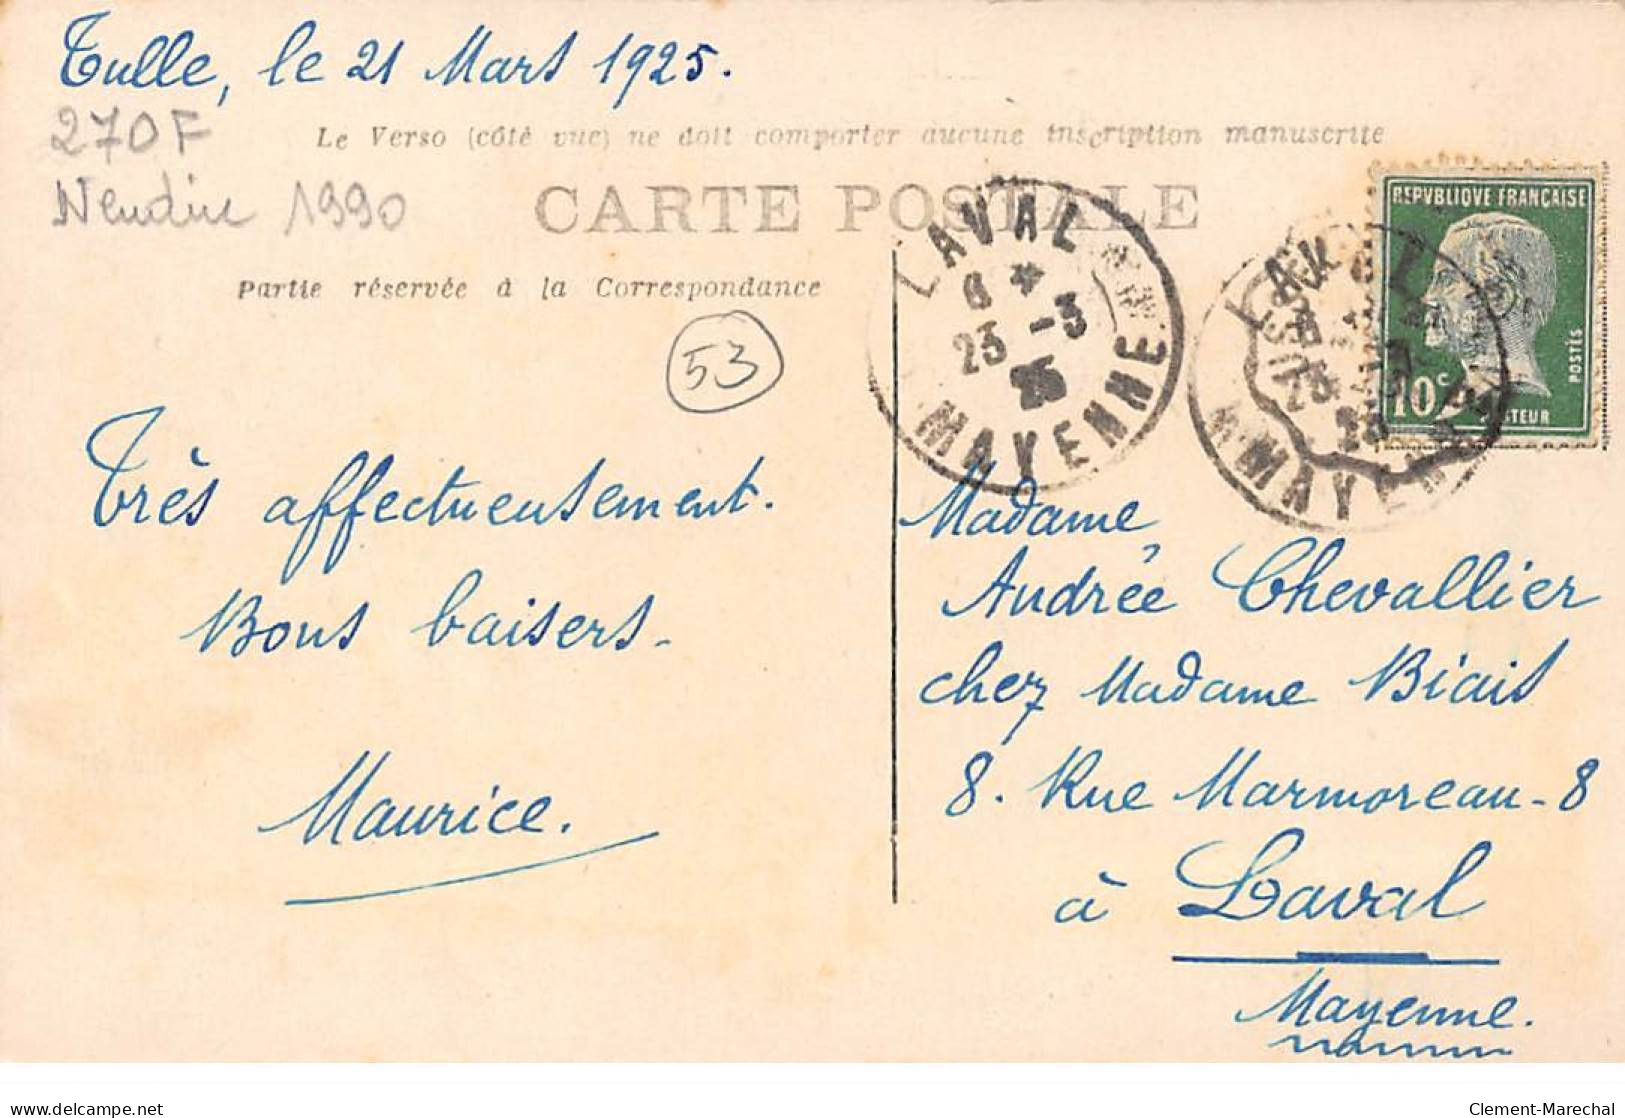 Tulle, le 21 Mars 1925.
270F
1990
Le Verso (côté vue) ne doit comporter aucune inscription manuscrite
CARTE POSTALE
Partie réservée à la Correspondance
53
LAVAL
6 *
23 -3
25
MAYENNE
REPVBLIQVE FRANÇAISE
POSTES
10c
PASTEUR
Très affectueusement.
Bons baisers.
Maurice.
Madame
Andrée Chevallier
chez Madame Biais
8. Rue Marmoreau - 8
à Laval
Mayenne.
delcampe.net
Clement-Marechal